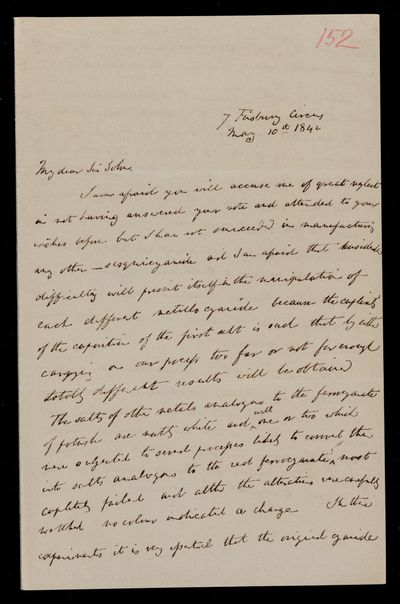 152
7 Finsbury Circus
May 10th 1842
My dear Sir John,
I am afraid you will accuse me of great neglect
in not having answered your note and attended to your
wishes before but I have not succeeded in manufacturing
any other — sesquicyanide and I am afraid that
difficulty will present itself in the manipulation of
each different metallo cyanide because the
of the composition of the first salt is such that by either
carrying on our process too far or not far enough
totally different results will be obtained
The salts of other metals analogous to the ferrocyanate
of potash are mostly white and will one or two which
were subjected to several processes likely to convert them
into salts analogous to the red ferrocyanate most
completely failed and altho the alterations were carefully
watched no colour indicated a change In these
experiments it is very that the original cyanide